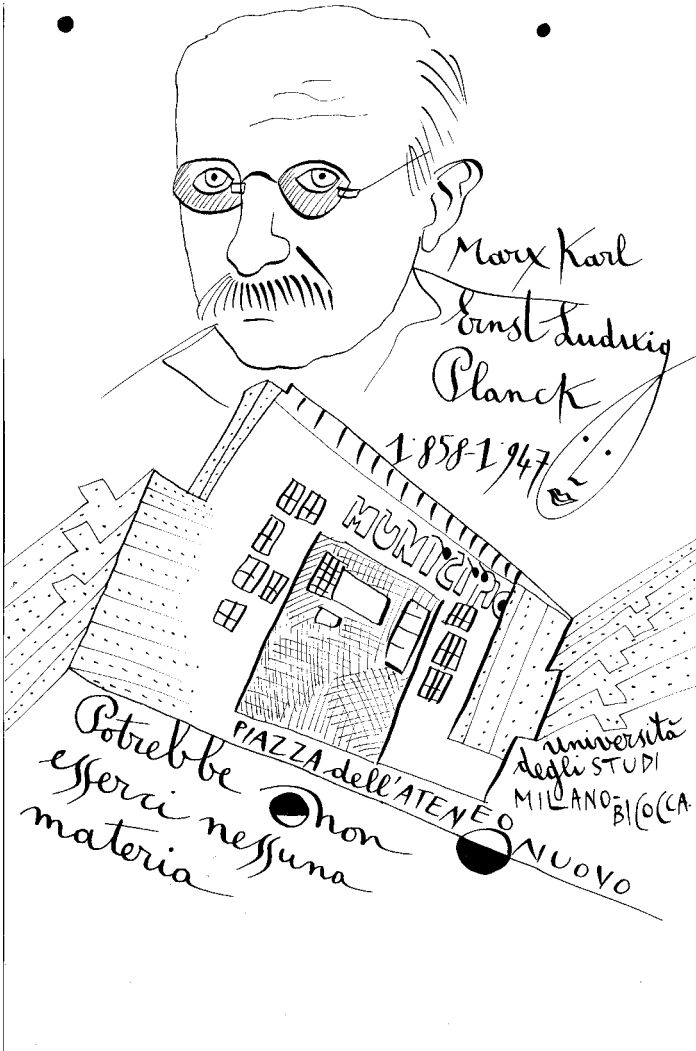 Marx Karl
Ernst Ludwig
Planck
1858-1947
MUNICIPIO
PIAZZA dell'ATENEO NUOVO
università
degli STUDI
MILANO=
BICOCCA.
Potrebbe non
esserci nessuna
materia